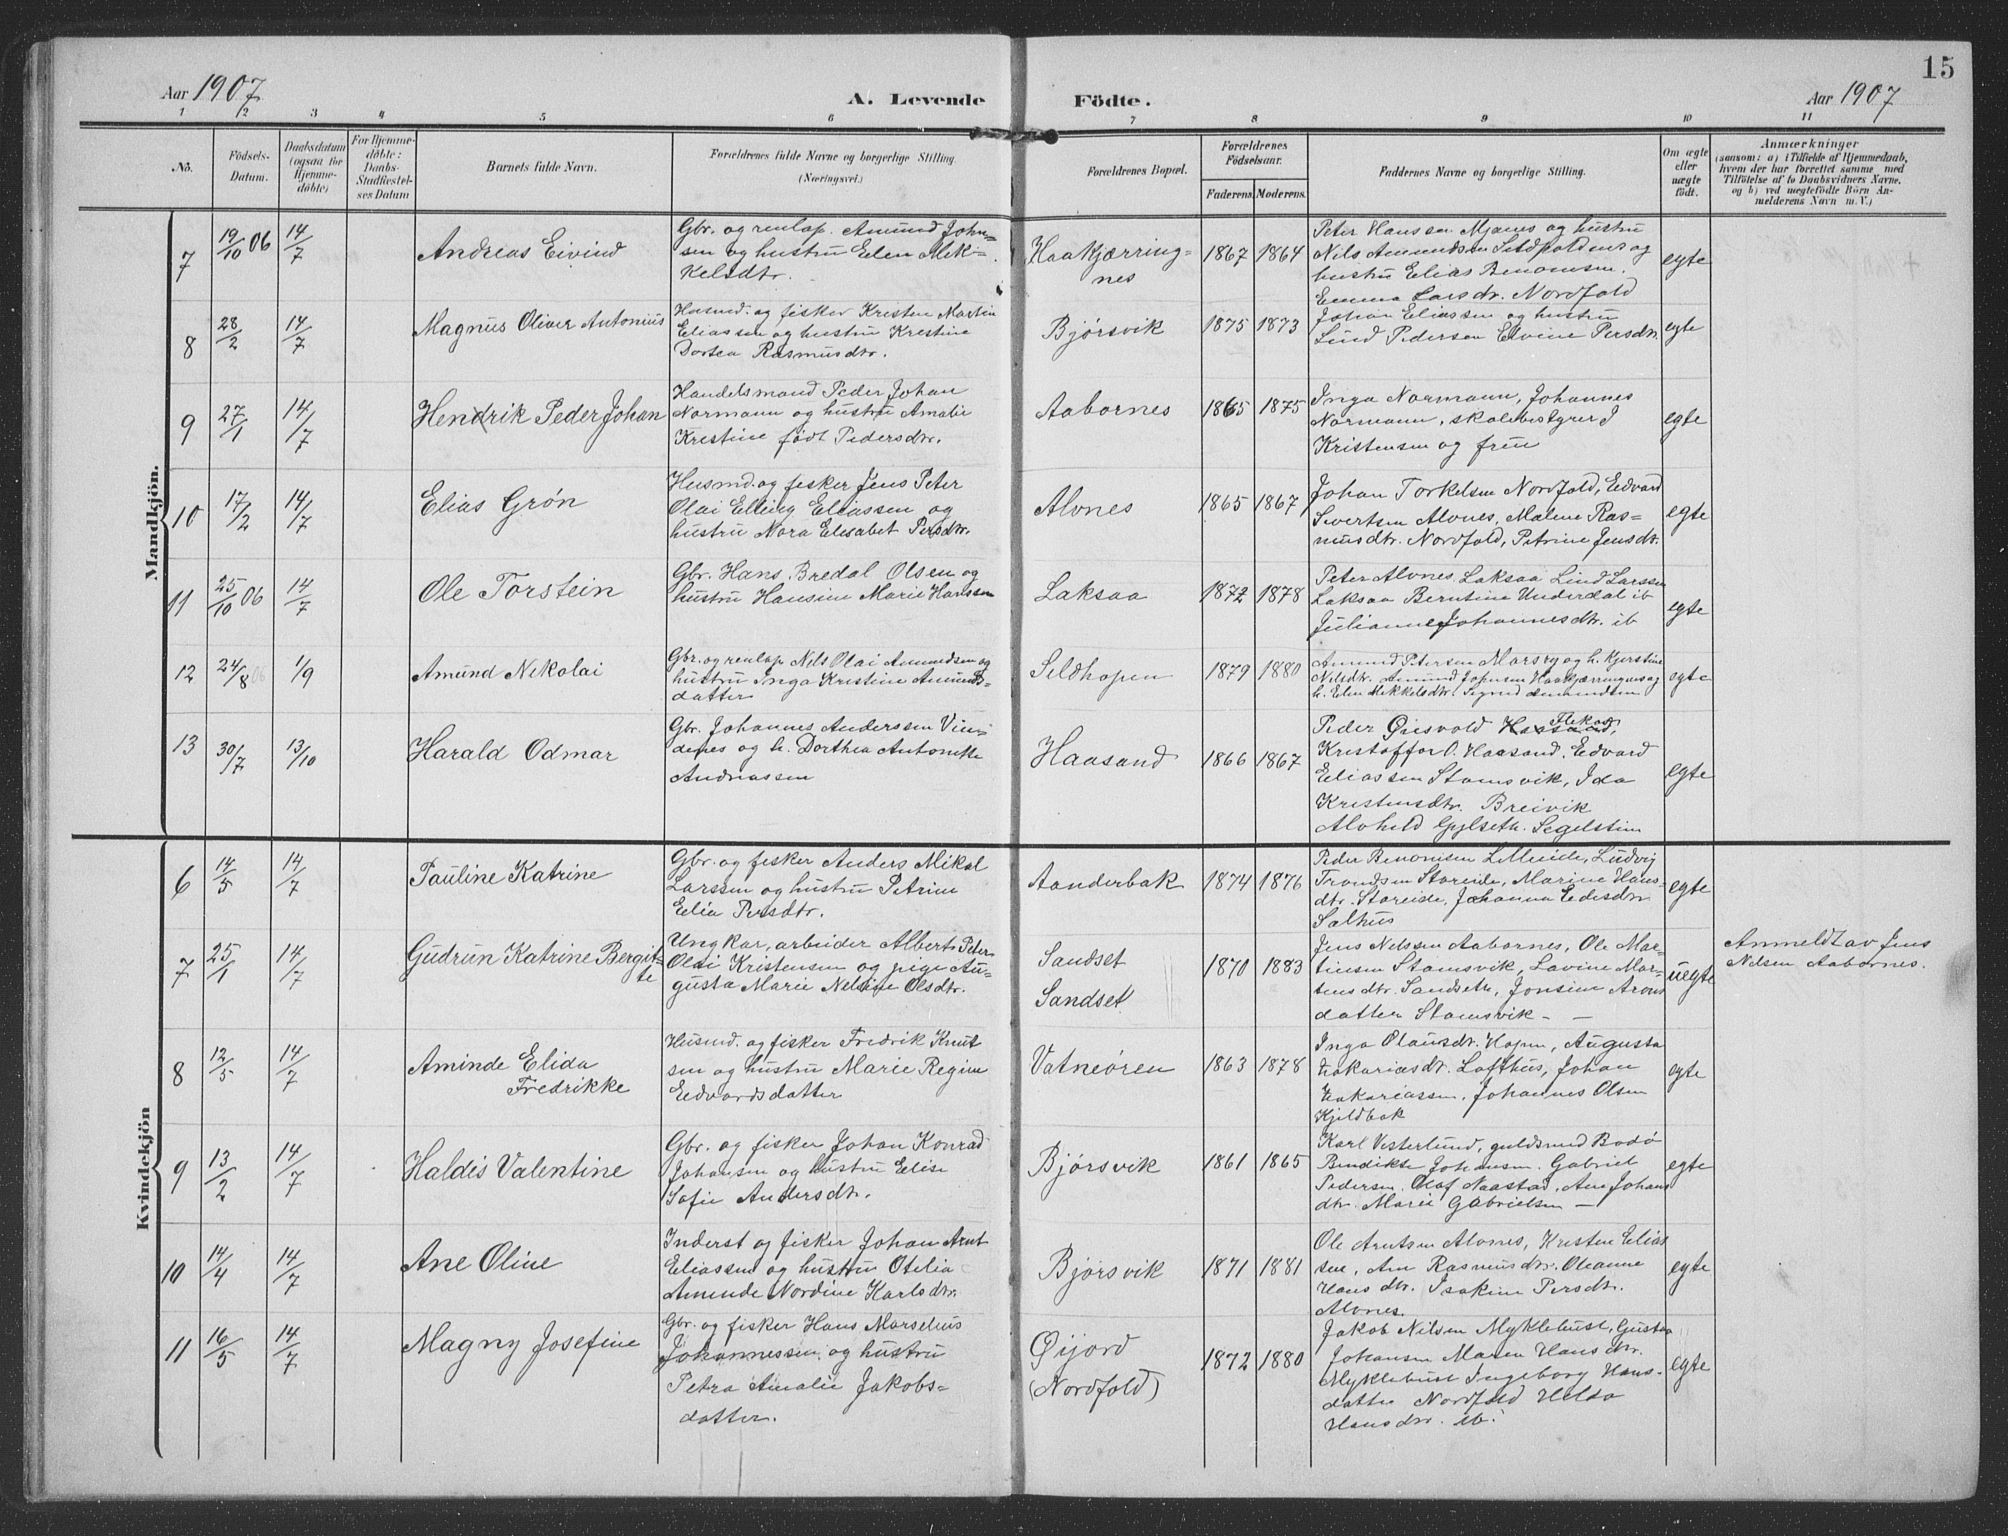 15
Aar 1907
A. Levende Födte.
Aar 1907
1 2 3 4 5 6 7 8 9 10 11
No.
Födsels-
Datum.
Daabsdatum
(ogsaa for
Hjemme-
döbte)
For Hjemme-
döbte:
Daabs-
Stadfæstel-
ses Datum
Barnets fulde Navn.
Forældrenes fulde Navne og borgerlige Stilling.
(Næringsvei.)
Forældrenes Bopæl.
Forældrenes
Födselsaar.
Faderens. Moderens.
Faddernes Navne og borgerlige Stilling.
Om ægte
eller
uægte
födt.
Anmærkninger
(saasom: a) i Tilfælde af Hjemmedaab,
hvem der har forrettet samme med
Tilföielse af to Daabsvidners Navne,
og b) ved uægtefödte Börn An-
melderens Navn m. V.)
Mandkjön.
7
19/10 06
14/7
Andreas Eivind
Gbr. og renlap. Amund John-
sen og hustru Elen Mik-
kelsdtr.
Haakjærring-
nes
1867 1864
Peter Hanssen Mjønes og hustru
Nils Amundsen
hustru Elias Benonisen.
Emma Larsdtr. Nordfold
egte
8
28/2
14/7
Magnus Oliver Antonius
Husmd. og fisker Kristen Martin
Eliassen og hustru Kristine
Dortea Rasmusdtr.
Bjørsvik
1875 1873
Johan Eliassen og hustru
Lind Pedersen Elvine Persdtr.
egte
9
27/1
14/7
Hendrik Peder Johan
Handelsmand Peder Johan
Normann og hustru Amalie
Kristine født Pedersdtr.
Aabornes
1865 1875
Inga Normann, Johannes
Normann, skolebestyrer J
Kristensen og frue
egte
10
17/2
14/7
Elias Grøn
Husmd. og fisker Jens Peter
Olai Elling Eliassen og
hustru Nora Elisabet Persdtr.
Alvnes
1865 1867
Johan Torkelsen Nordfold, Edvard
Sivertsen Alvnes, Malene Ras-
musdtr. Nordfold, Petrine Jensdtr.
egte
11
25/10 06
14/7
Ole Torstein
Gbr. Hans Bredal Olsen og
hustru Hansine Marie Hanssen
Laksaa
1872 1878
Peter Alvnes Laksaa Lind Larssen
Laksaa Berntine Underdal ib
Julianne Johannesdtr. ib
egte
12
24/8 06
1/9
Amund Nikolai
Gbr. og renlap Nils Olai Amundsen og
hustru Inga Kristine Amunds-
datter
Seldhopen
1879 1880
Amund Petersen og h. Kjerstine
Nilsdtr. Amund Johnsen Haakjærringnes og
h. Elen Mikkelsdtr. Sigrid Amundsen
egte
13
30/7
13/10
Harald Odmar
Gbr. Johannes Anderssen Vin-
denes og h. Dorthea Antonette
Andreassen
Haasand
1866 1867
Peder Øinsvold
Kristoffer O. Haasand. Edvard
Eliassen Stamsvik, Ida
Kristensdtr. Breivik
Alvhild Gylseth. Segelstein
egte
Kvindekjön
6
14/5
14/7
Pauline Katrine
Gbr. og fisker Anders Mikal
Larssen og hustru Petrine
Elia Persdtr.
Aanderbak
1874 1876
Peder Benonisen Lilleide, Ludvig
Trondsen Storeide, Marine Hans-
dtr. Storeide, Johanna Edisdtr.
Salhus
egte
7
25/1
14/7
Gudrun Katrine Bergit-
te
Ungkar, arbeider Albert Peter
Olai Kristensen og pige Au-
gusta Marie Nelsine Olsdtr.
Sandset
Sandset
1870 1883
Jens Nelssen Aabornes, Ole Mar-
tinsen Stamsvik, Lavine Mar-
tensdtr. Sandseth, Jonsine Arons
datter Stamsvik - -
uegte
Anmeldt av Jens
Nelsen Aabornes.
8
12/5
14/7
Aminde Elida
Fredrikke
Husmd. og fisker Fredrik Knut
sen og hustru Marie Regine
Edvardsdatter
Vatneøren
1863 1878
Inga Olausdtr. Hopen, Augusta
Zakariasdtr. Lofthus, Johan
Zakariassen, Johannes Olsen
Kjeldbak
egte
9
13/2
14/7
Haldis Valentine
Gbr. og fisker Johan Konrad
Johansen og hustru Elise
Sofie Andersdtr.
Bjørsvik
1861 1865
Karl Vesterlund, guldsmed Bodø
Bendikte Johansen. Gabriel
Pedersen, Olaf Naastad, Ane Johans
dtr. Marie Gabrielsen -
egte
10
14/4
14/7
Ane Oline
Inderst og fisker Johan Arnt
Eliassen og hustru Otelia
Aminde Nordine Karlsdtr.
Bjørsvik
1871 1881
Ole Arntsen Alvnes, Kristen Elias
sen, Ane Rasmusdtr. Oleanne
Hansdtr. Isakine Persdtr.
Alvnes.
egte
11
16/5
14/7
Magny Josefine
Gbr. og fisker Hans Marselius
Johannessen, og hustru
Petra Amalie Jakobs-
datter.
Øijord
(Nordfold)
1872 1880
Jakob Nilsen Myklebust, Gusta
Johansen Maren Hansdtr.
Myklebust Ingeborg Hans-
datter Nordfold Hilda
Hansdtr. ib.
egte